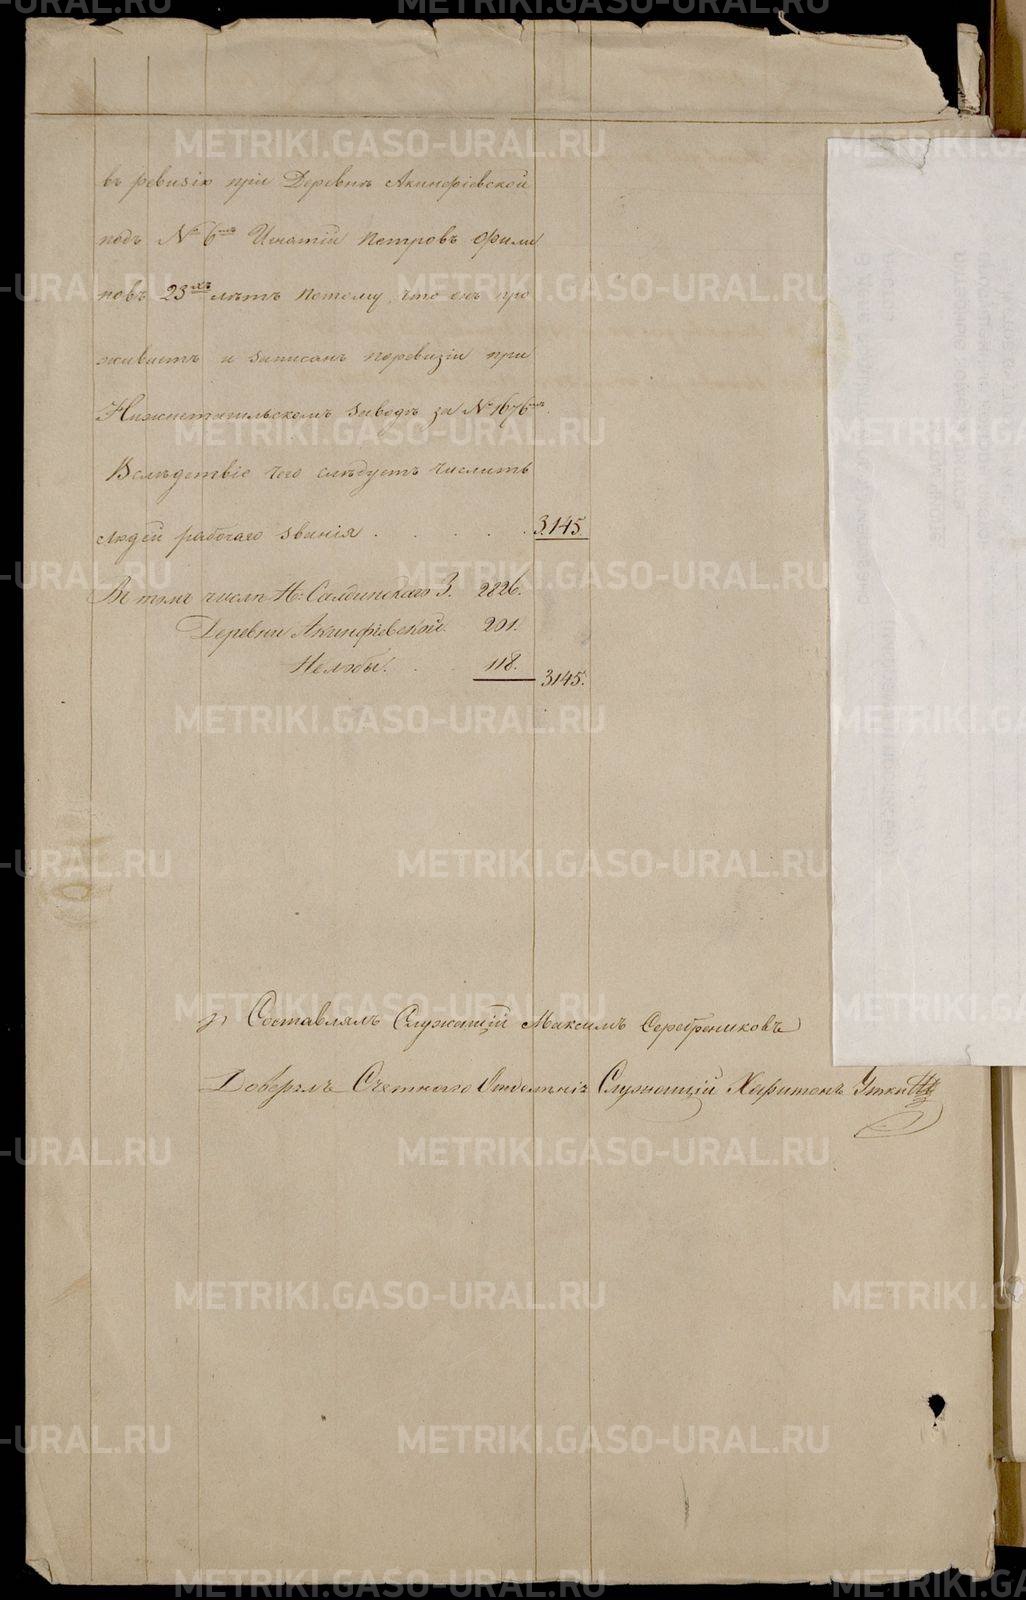 въ ревизію при Деревнѣ Акинфіевской
подъ № 6мъ Игнатій Петровъ Фили
повъ 23хъ лѣтъ потому, что онъ про
живаетъ и записанъ поревизіи при
Нижнетагильскомъ заводѣ за № 1676мъ.
Вслѣдствіе чего слѣдуетъ числить
людей рабочаго званія . . . . . 3.145.
Въ томъ числѣ Н: Салдинскаго З. 2826.
Деревни Акинфіевской. 201.
Нелобы. . . 118. 3145.
Составлялъ Служащій Максимъ Серебрениковъ
Повѣрялъ Счетнаго Отдѣленія Служащій Харитонъ Уткинъ
METRIKI.GASO-URAL.RU